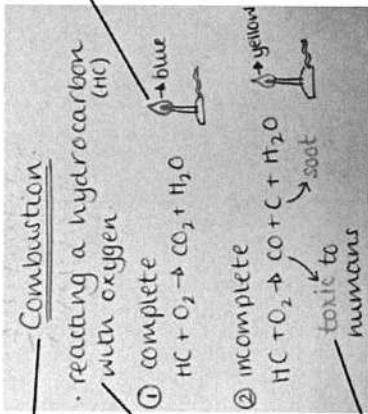 Combustion
· reacting a hydrocarbon
(HC)
with oxygen
① complete
→blue
HC + O₂ → CO₂ + H₂O
② incomplete
→yellow
HC + O₂ → CO + C + H₂O
soot
toxic to
humans